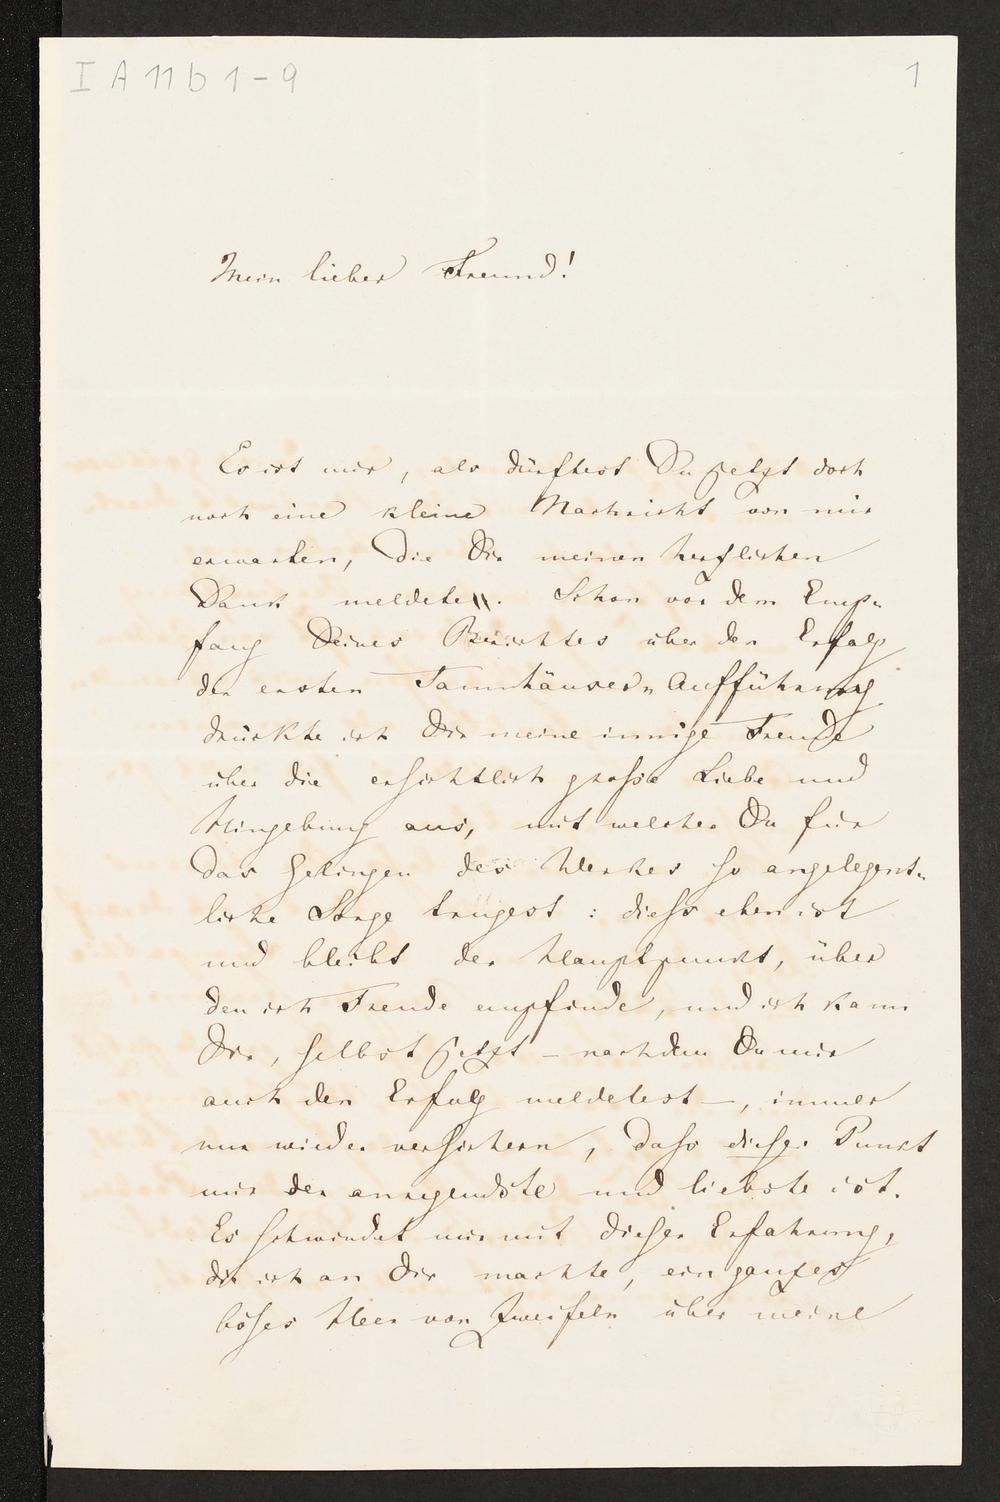 I A 11 b 1-9
1
Mein lieber Freund!
Es ist mir, als dürftest Du jetzt doch
noch eine kleine Nachricht von mir
erwarten, die Dir meinen herzlichen
Dank meldete. Schon vor dem Emp-
fang Deines Berichtes über den Erfolg
der ersten Tannhäuser-Aufführung
drückte ich Dir meine innige Freude
über die ersichtlich große Liebe und
Hingebung aus, mit welcher Du für
das Gelingen des Werkes so angelegent-
liche Sorge trugest: dieß eben ist
und bleibt der Hauptpunkt, über
den ich Freude empfinde, und ich kann
Dir, selbst jetzt – nachdem Du mir
auch den Erfolg meldetest –, immer
nur wieder versichern, daß dieser Punkt
mir der anregendste und liebste ist.
Es schwindet mir mit dieser Erfahrung,
die ich an Dir machte, ein ganzes
böses Heer von Zweifeln über meine